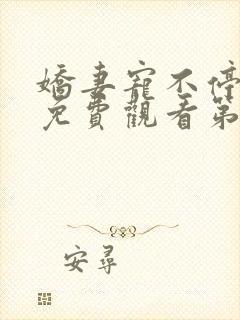 嬌妻寵不停
免費觀看第
安尋